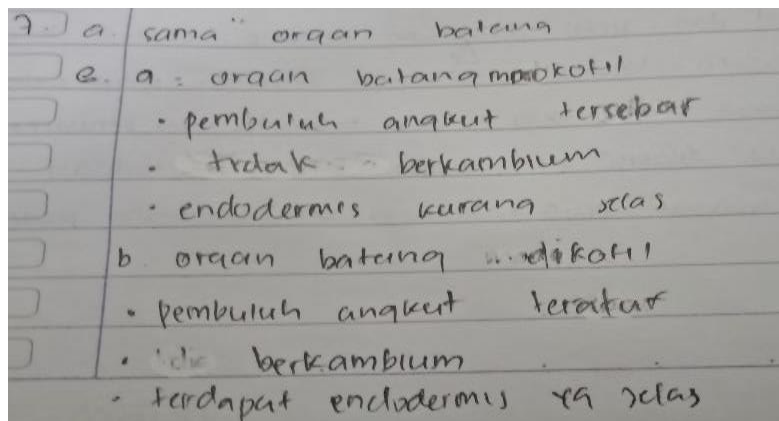 7. a sama" organ batang
e. a. organ batang monokotil
• pembuluh angkut tersebar
• tidak berkambium
• endodermis kurang jelas
b organ batang dikotil
• pembuluh angkut teratur
• berkambium
• terdapat endodermis yg jelas